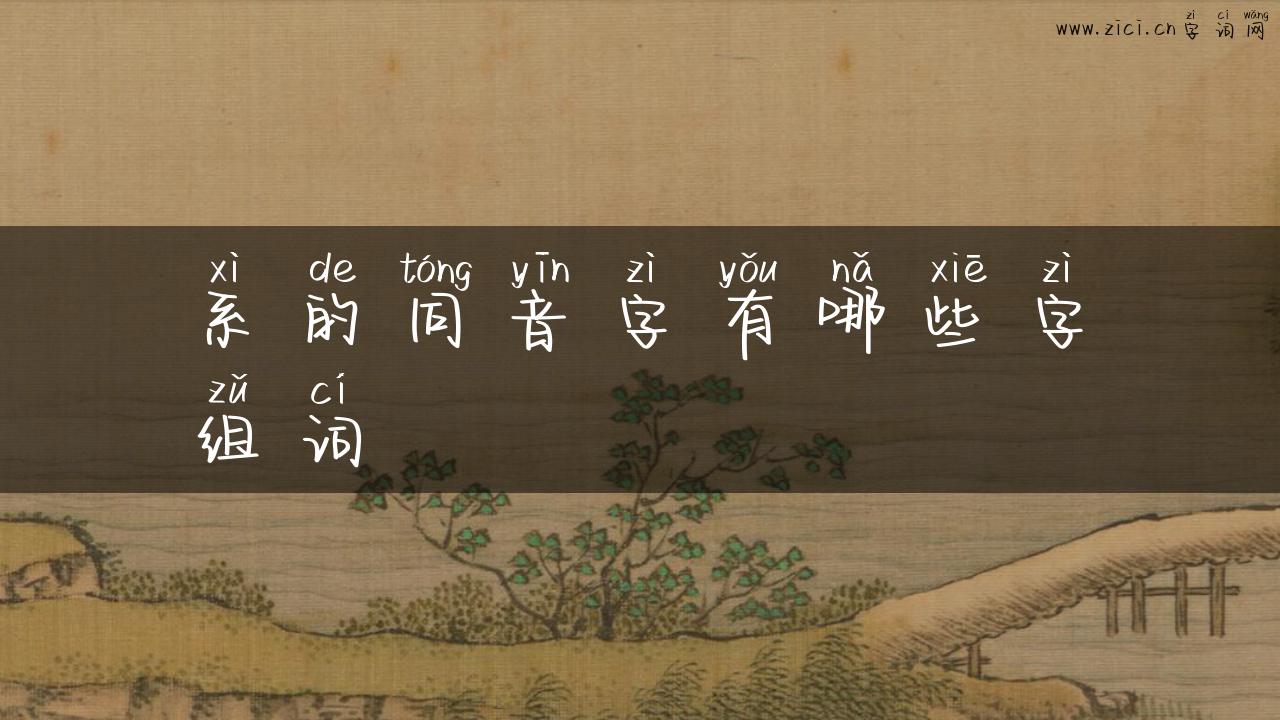 zì cí wǎng
www.zici.cn字词网
xì de tóng yīn zì yǒu nǎ xiē zì
系的同音字有哪些字
zǔ cí
组词